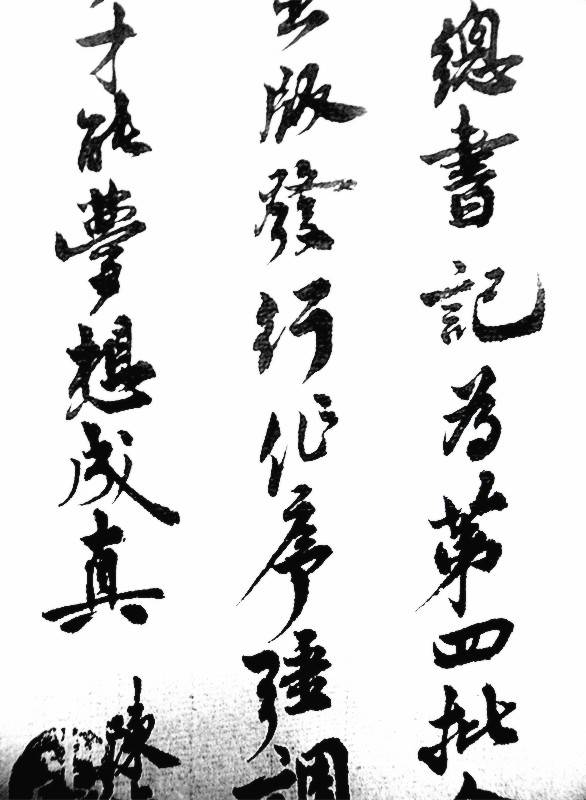 總書記為第四批
出版發行作序強調
才能夢想成真 陳